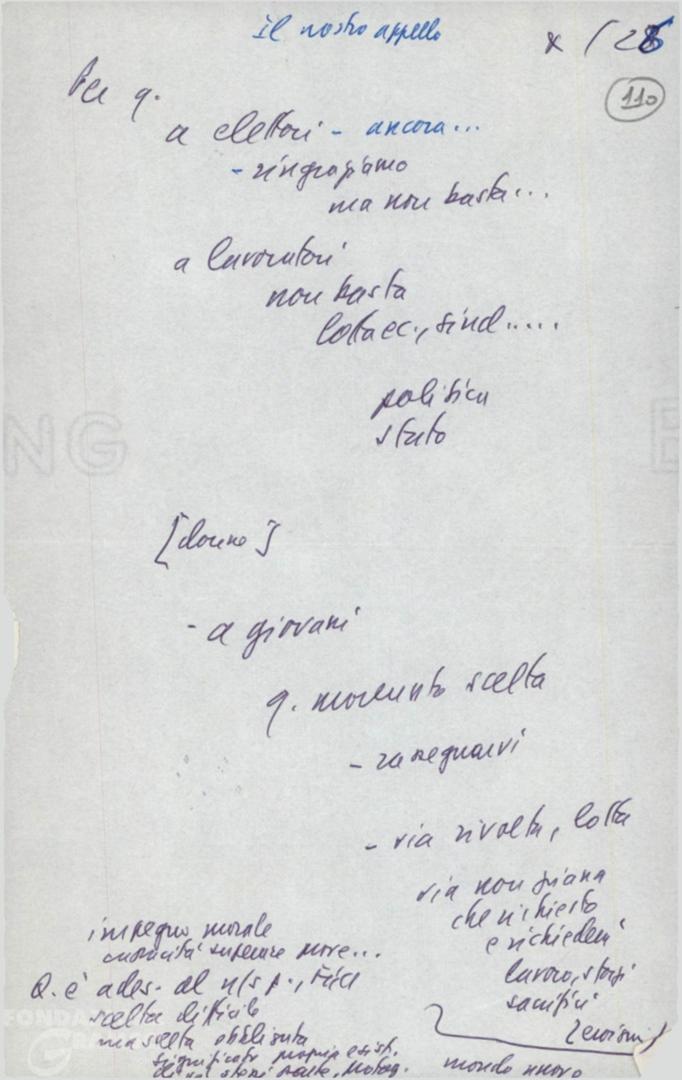 Il nostro appello
x / 28
110
Per q.
a elettori - ancora...
- ringraziamo
ma non basta...
a lavoratori
non basta
lotta ec., sind.....
politica
stato
[donne]
- a giovani
q. momento scelta
- rassegnarvi
- via rivolta, lotta
via non piana
che richiesto
e richiederà
lavoro, sforzi
sacrifici
impegno morale
superare
Q. è ades. al n/s p.,
scelta difficile
ma scelta obbligata
significato propria esist.
mondo nuovo